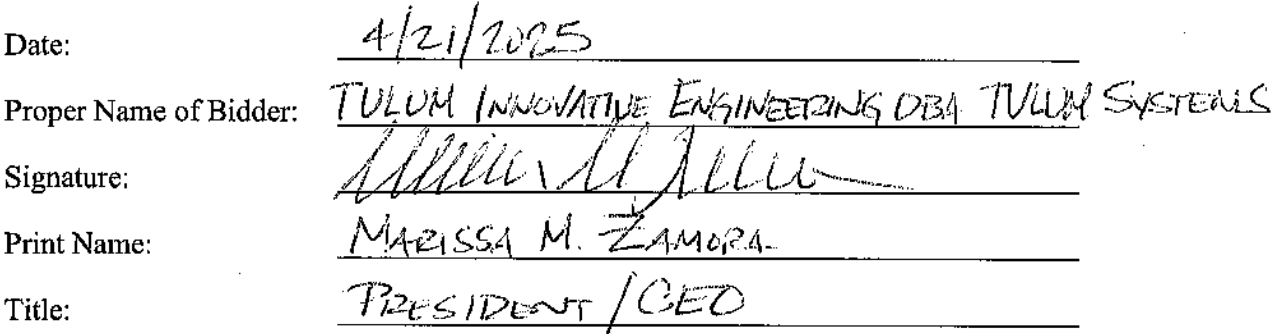 Date: 4/21/2025
Proper Name of Bidder: TULUM INNOVATIVE ENGINEERING DBA TULUM SYSTEMS
Signature:
Print Name: MARISSA M. ZAMORA
Title: PRESIDENT/CEO